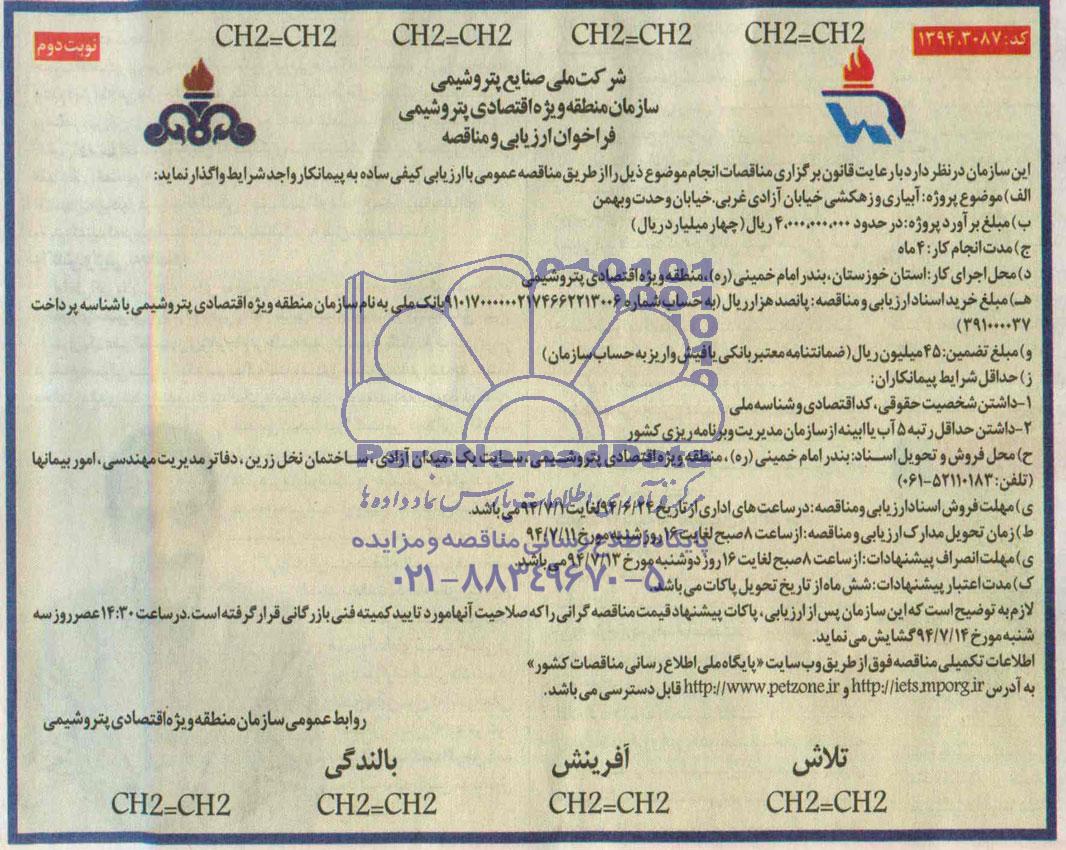 CH2=CH2 CH2=CH2 CH2=CH2 CH2=CH2
کد: ۱۳۹۴.۳۰۸۷
نوبت دوم
شرکت ملی صنایع پتروشیمی
سازمان منطقه ویژه اقتصادی پتروشیمی
فراخوان ارزیابی و مناقصه
این سازمان در نظر دارد با رعایت قانون برگزاری مناقصات انجام موضوع ذیل را از طریق مناقصه عمومی با ارزیابی کیفی ساده به پیمانکار واجد شرایط واگذار نماید:
الف) موضوع پروژه: آبیاری و زهکشی خیابان آزادی غربی، خیابان وحدت و بهمن
ب) مبلغ برآورد پروژه: در حدود ۴,۰۰۰,۰۰۰,۰۰۰ ریال (چهار میلیارد ریال)
ج) مدت انجام کار: ۴ ماه
د) محل اجرای کار: استان خوزستان، بندر امام خمینی (ره)، منطقه ویژه اقتصادی پتروشیمی
هـ) مبلغ خرید اسناد ارزیابی و مناقصه: پانصد هزار ریال (به حساب شماره ۹۱۰۱۷۰۰۰۰۰۰۲۱۷۴۶۶۲۲۱۳۰۰۶ بانک ملی به نام سازمان منطقه ویژه اقتصادی پتروشیمی با شناسه پرداخت
۳۹۱۰۰۰۰۳۷)
و) مبلغ تضمین: ۴۵ میلیون ریال (ضمانتنامه معتبر بانکی یا فیش واریز به حساب سازمان)
ز) حداقل شرایط پیمانکاران:
۱- داشتن شخصیت حقوقی، کد اقتصادی و شناسه ملی
۲- داشتن حداقل رتبه ۵ آب یا ابنیه از سازمان مدیریت و برنامه ریزی کشور
ح) محل فروش و تحویل اسناد: بندر امام خمینی (ره)، منطقه ویژه اقتصادی پتروشیمی، سایت یک، میدان آزادی، ساختمان نخل زرین، دفاتر مدیریت مهندسی، امور پیمانها
(تلفن: ۵۲۱۱۰۱۸۳-۰۶۱)
ی) مهلت فروش اسناد ارزیابی و مناقصه: در ساعت های اداری از تاریخ ۹۴/۶/۲۴ لغایت ۹۴/۷/۱ می باشد.
ط) زمان تحویل مدارک ارزیابی و مناقصه: از ساعت ۸ صبح لغایت ۱۶ روز شنبه مورخ ۹۴/۷/۱۱
ی) مهلت انصراف پیشنهادات: از ساعت ۸ صبح لغایت ۱۶ روز دوشنبه مورخ ۹۴/۷/۱۳ می باشد.
ک) مدت اعتبار پیشنهادات: شش ماه از تاریخ تحویل پاکات می باشد.
لازم به توضیح است که این سازمان پس از ارزیابی، پاکات پیشنهاد قیمت مناقصه گرانی را که صلاحیت آنها مورد تایید کمیته فنی بازرگانی قرار گرفته است. در ساعت ۱۴:۳۰ عصر روز سه
شنبه مورخ ۹۴/۷/۱۴ گشایش می نماید.
اطلاعات تکمیلی مناقصه فوق از طریق وب سایت «پایگاه ملی اطلاع رسانی مناقصات کشور»
به آدرس http://iets.mporg.ir و http://www.petzone.ir قابل دسترسی می باشد.
روابط عمومی سازمان منطقه ویژه اقتصادی پتروشیمی
تلاش آفرینش بالندگی
CH2=CH2 CH2=CH2 CH2=CH2 CH2=CH2
مرکز فرآوری اطلاعات پارس نماد داده ها
پایگاه اطلاع رسانی مناقصه و مزایده
۰۲۱-۸۸۳۴۹۶۷۰-۵